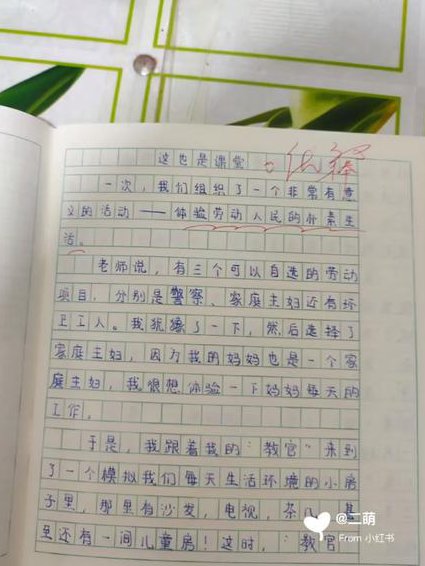 这也是课堂
优 棒
一次，我们组织了一个非常有意
义的活动——体验劳动人民的朴素生
活。
老师说，有三个可以自选的劳动
项目，分别是警察、家庭主妇还有环
卫工人。我犹豫了一下，然后选择了
家庭主妇，因为我的妈妈也是一个家
庭主妇，我很想体验一下妈妈每天的
工作。
于是，我跟着我的“教官”来到
了一个模拟我们每天生活环境的小房
子里，那里有沙发，电视，茶几，甚
至还有一间儿童房！这时，“教官
@二萌
From 小红书